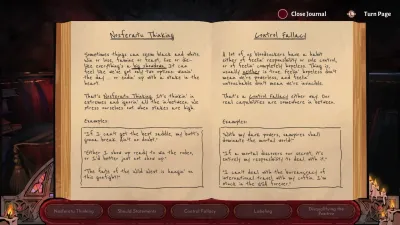 Close Journal
Turn Page
Nosferatu Thinking
Sometimes things can seem black and white,
win or lose, famine or feast, live or die-
like everything's a big showdown. It can
feel like we've got only two options: ownin'
the day or endin' up with a stake in the
heart.
That's Nosferatu Thinking. It's thinkin' in
extremes and ignorin' all the in-betweens. We
stress ourselves out when stakes are high.
Examples:
"If I can't get the best saddle, my butt's
gonna break. Ain't no doubt."
"Either I show up ready to win the rodeo,
or I'd better just not show up."
"The fate of the wild west is hangin' on
this gunfight!"
Control Fallacy
A lot of us bloodsuckers have a habit
either of feelin' responsibility or sole control,
or of feelin' completely hopeless. Thing is,
usually neither is true. Feelin' hopeless don't
mean we're powerless, and feelin'
untouchable don't mean we're invincible.
That's a Control Fallacy either way. Our
real capabilities are somewhere in between.
Examples:
"With my dark powers, vampires shall
dominate the mortal world!"
"If a mortal discovers our secret, it's
entirely my responsibility to deal with it."
"I can't deal with the bureaucracy of
international travel with my coffin. I'm
stuck in the wild forever."
Nosferatu Thinking
Should Statements
Control Fallacy
Labeling
Disqualifying the
Positive